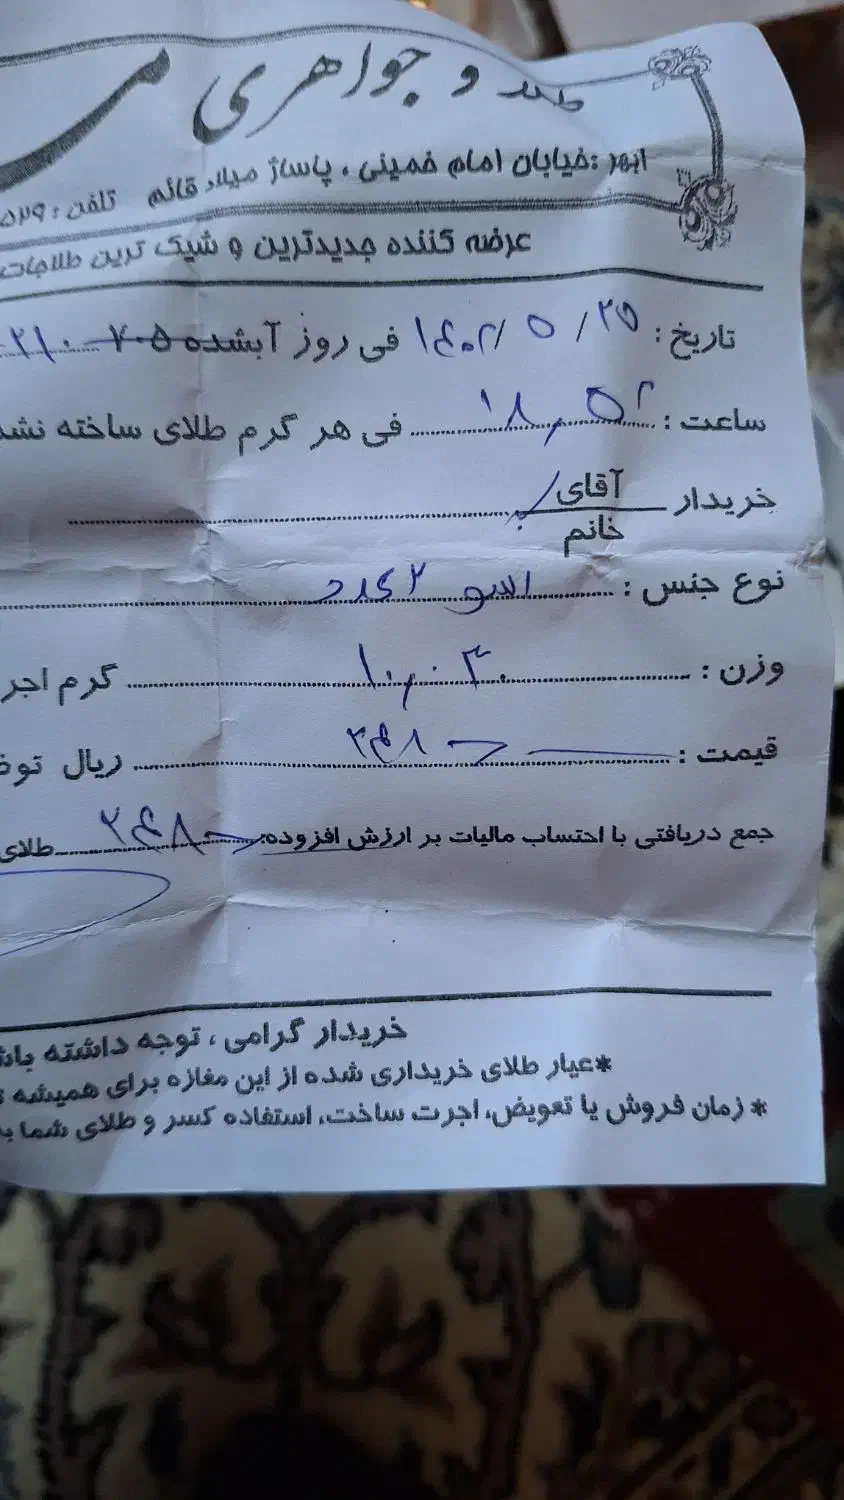 طلا و جواهری
ابهر :خیابان امام خمینی ، پاساژ میلاد قائم تلفن :
عرضه کننده جدیدترین و شیک ترین طلاجات
تاریخ : ۱۴۰۲/۵/۲۵ فی روز آبشده ۷۰۵
ساعت : فی هر گرم طلای ساخته
خریدار آقای
خانم
نوع جنس : النگو ۲ عدد
وزن : گرم
قیمت : ۲۴۸ ریال
جمع دریافتی با احتساب مالیات بر ارزش افزوده: ۲۴۸ طلای
خریدار گرامی ، توجه داشته
*عیار طلای خریداری شده از این مغازه برای همیشه
* زمان فروش یا تعویض، اجرت ساخت، استفاده کسر و طلای شما